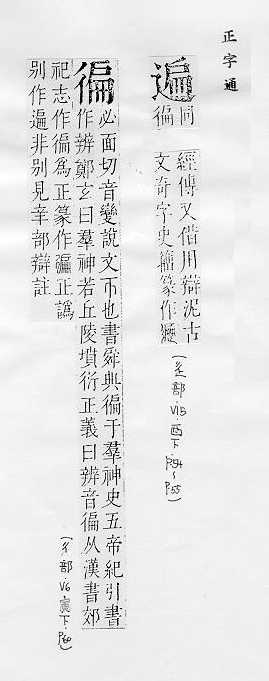 正字通
遍
同
徧
經傳又借用辯泥古
文奇字史籀篆作
(辵部·V15·酉下·P54~P55)
徧
必面切音變說文帀也書舜典徧于羣神史五帝紀引書
作辨鄭玄曰羣神若丘陵墳衍正義曰辨音徧从漢書郊
祀志作徧為正篆作正譌
別作遍非別見辛部辯註
(彳部·V6·寅下·P60)